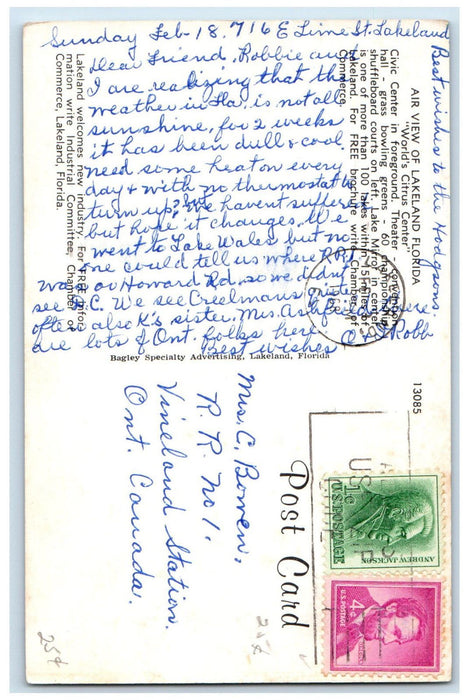 Sunday Feb-18. 716 E Lime St. Lakeland
Dear Friend, Robbie and
I are realizing that the
weather in Fla. is not all
sunshine, for 2 weeks
it has been dull & cool
need some heat on every
day & with no thermostat to
turn up, we havent suffered
but hope it changes. We
went to Lake Wales but no
one could tell us where
was or Howard Rd. so we didn't
see B.C. We see Creelmans
often also K's sister, Mrs. There
are lots of Ont. folks here.
Best wishes Robb
Best wishes to the Hodgsons.
AIR VIEW OF LAKELAND FLORIDA
"World's Citrus Center"
Civic Center in foreground. Theater - convention
hall - grass bowling greens - 60 championship
shuffleboard courts on left. Lake Mirror in center
is one of more than 100 lakes within 15 miles of
Lakeland. For FREE brochure write Chamber of
Commerce.
Lakeland welcomes new industry. For FREE infor-
mation write Industrial Committee, Chamber of
Commerce, Lakeland, Florida.
Bagley Specialty Advertising, Lakeland, Florida
13085
Post Card
Mrs. C. Bowen,
R. R. No 1.
Vineland Station
Ont. Canada.
1¢
U.S. POSTAGE
ANDREW JACKSON
4¢
U.S. POSTAGE
25¢
25¢